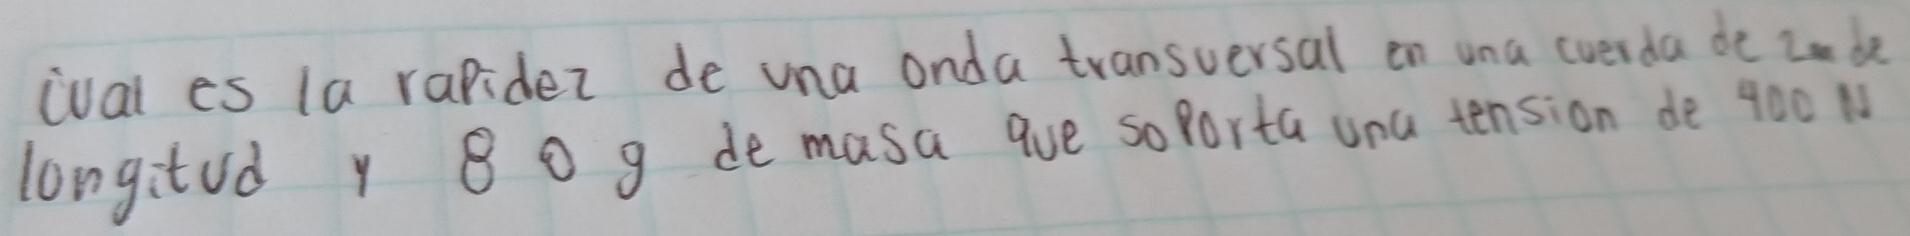 cual es la rapidez de una onda transversal en una cuerda de 2m de
longitud y 80 g de masa que soporta una tension de 900 N